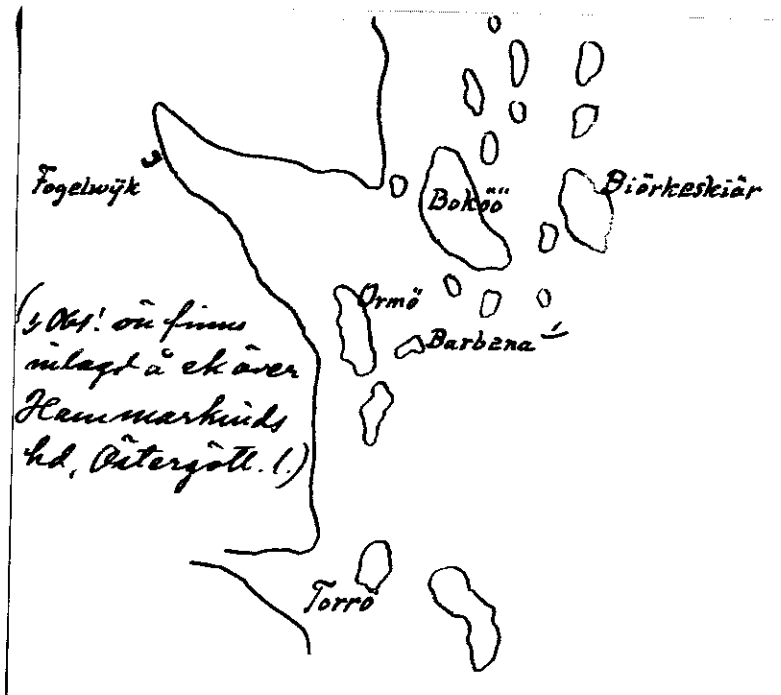 Fogelwÿk
Boköö
Biörkeskiär
Ormö
Barbena 1/
(1/ Obs! ön finns
inlagd å ek över
Hammarkinds
hd, Östergötl. l.)
Torrö